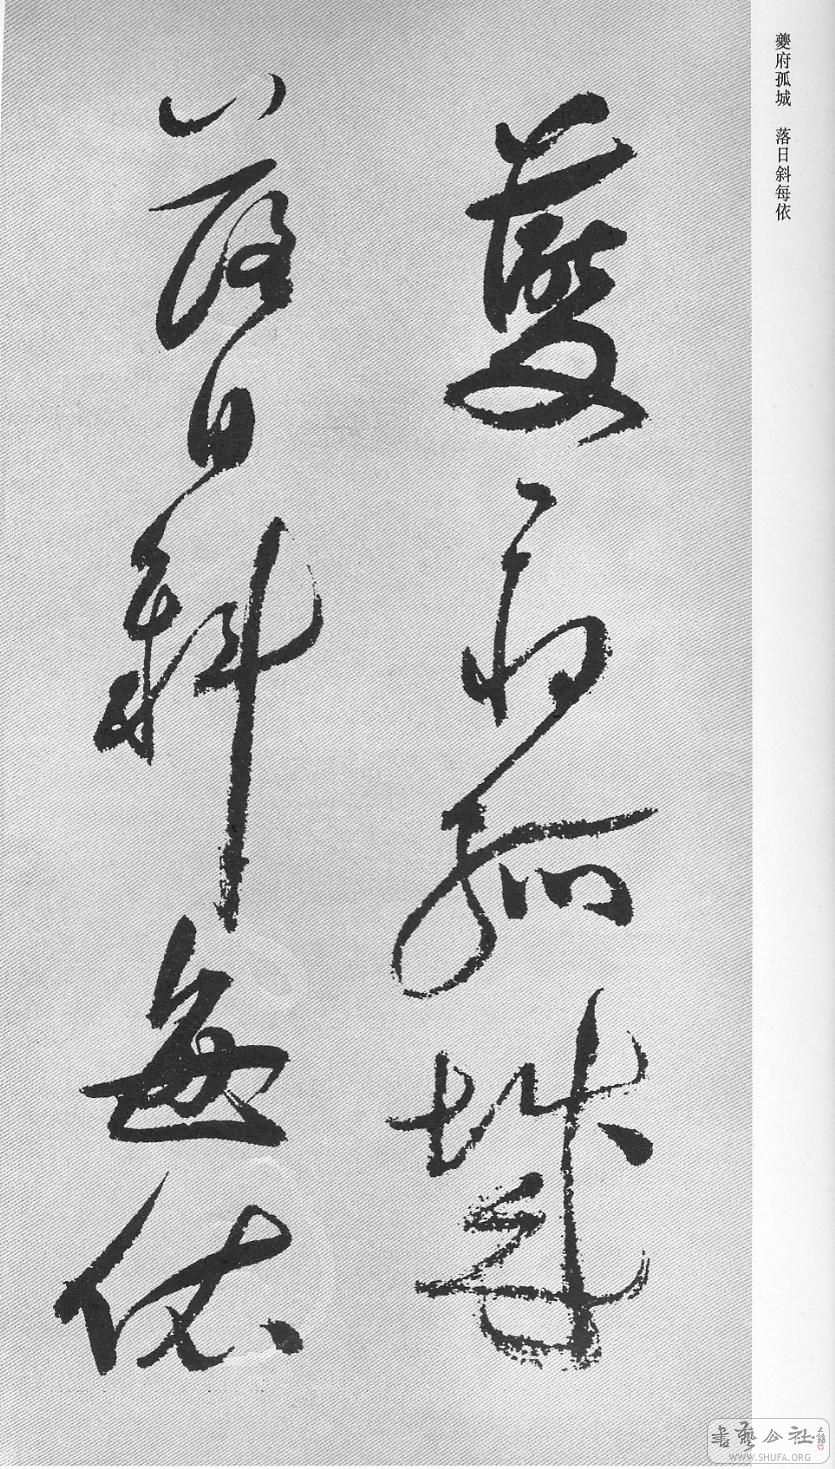 夔府孤城　落日斜每依
夔府孤城
落日斜每依
書藝公社
WWW.SHUFA.ORG